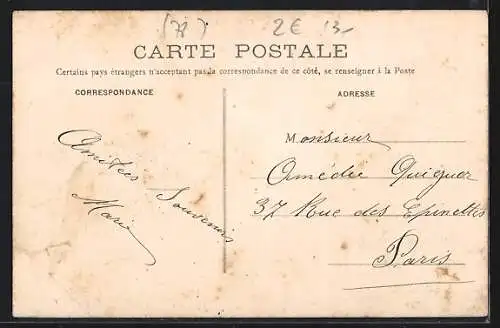 (78) 2€ 13-
CARTE POSTALE
Certains pays étrangers n'acceptant pas la correspondance de ce côté, se renseigner à la Poste
CORRESPONDANCE
Amitiées
Souvenirs
Mario
ADRESSE
Monsieur
Amédée Quiguer
37 Rue des Epinettes
Paris